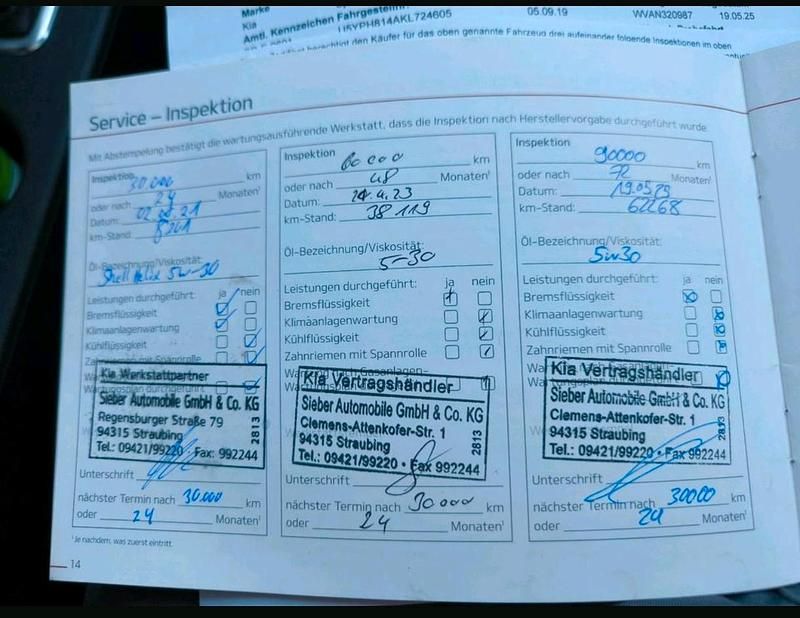 Marke
Kia
05.09.19
WVAN320987
19.05.25
Amtl. Kennzeichen
U5YPH814AKL724605
berechtigt den Käufer für das oben genannte Fahrzeug drei aufeinander folgende Inspektionen im oben
Service – Inspektion
Mit Abstempelung bestätigt die wartungsausführende Werkstatt, dass die Inspektion nach Herstellervorgabe durchgeführt wurde.
Inspektion 30.000 km
oder nach 24 Monaten¹
Datum:
km-Stand:
Öl-Bezeichnung/Viskosität:
Shell Helix 5W-30
Leistungen durchgeführt: ja nein
Bremsflüssigkeit
Klimaanlagenwartung
Kühlflüssigkeit
Zahnriemen mit Spannrolle
Kia Werkstattpartner
Sieber Automobile GmbH & Co. KG
Regensburger Straße 79
94315 Straubing
Tel.: 09421/99220 · Fax: 992244
2813
Unterschrift
nächster Termin nach 30.000 km
oder 24 Monaten¹
Inspektion 60000 km
oder nach 48 Monaten¹
Datum: 4.23
km-Stand: 38 119
Öl-Bezeichnung/Viskosität:
5-30
Leistungen durchgeführt: ja nein
Bremsflüssigkeit
Klimaanlagenwartung
Kühlflüssigkeit
Zahnriemen mit Spannrolle
Kia Vertragshändler
Sieber Automobile GmbH & Co. KG
Clemens-Attenkofer-Str. 1
94315 Straubing
Tel.: 09421/99220 · Fax 992244
2813
Unterschrift
nächster Termin nach 30000 km
oder 24 Monaten¹
Inspektion 90000 km
oder nach 72 Monaten¹
Datum: 19.05.25
km-Stand: 62268
Öl-Bezeichnung/Viskosität:
5W30
Leistungen durchgeführt: ja nein
Bremsflüssigkeit
Klimaanlagenwartung
Kühlflüssigkeit
Zahnriemen mit Spannrolle
Kia Vertragshändler
Sieber Automobile GmbH & Co. KG
Clemens-Attenkofer-Str. 1
94315 Straubing
Tel.: 09421/99220 · Fax 992244
2813
Unterschrift
nächster Termin nach 30000 km
oder 24 Monaten¹
¹Je nachdem, was zuerst eintritt.
14